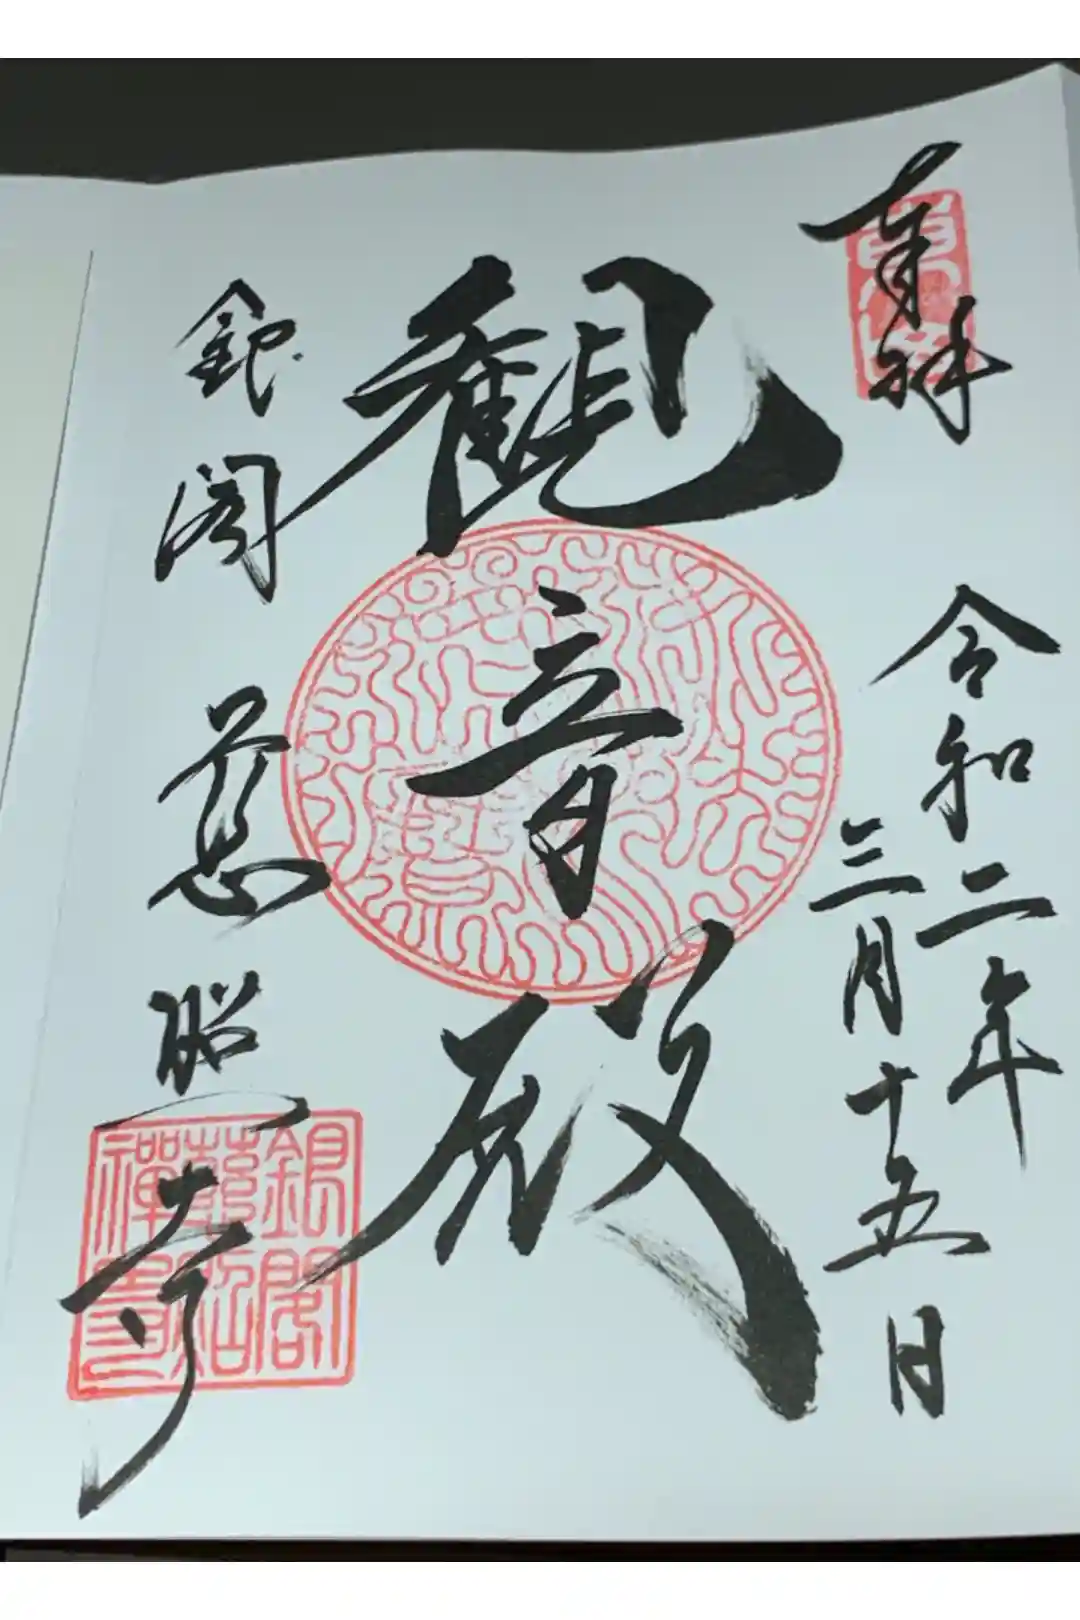 奉拝
令和二年
三月十五日
觀音殿
銀閣
慈照寺
銀閣
慈照
禅寺